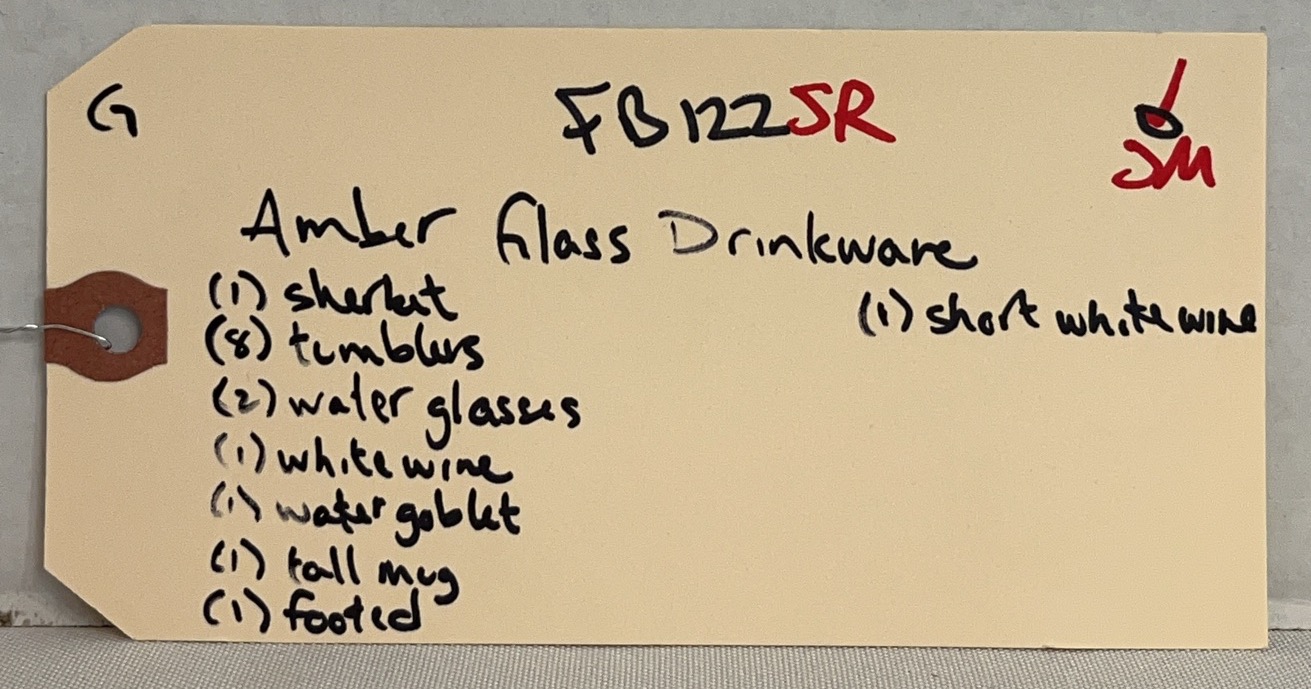 G FB122JR
JM
Amber Glass Drinkware
(1) sherbet
(1) short white wine
(8) tumblers
(2) water glasses
(1) white wine
(1) water goblet
(1) tall mug
(1) footed